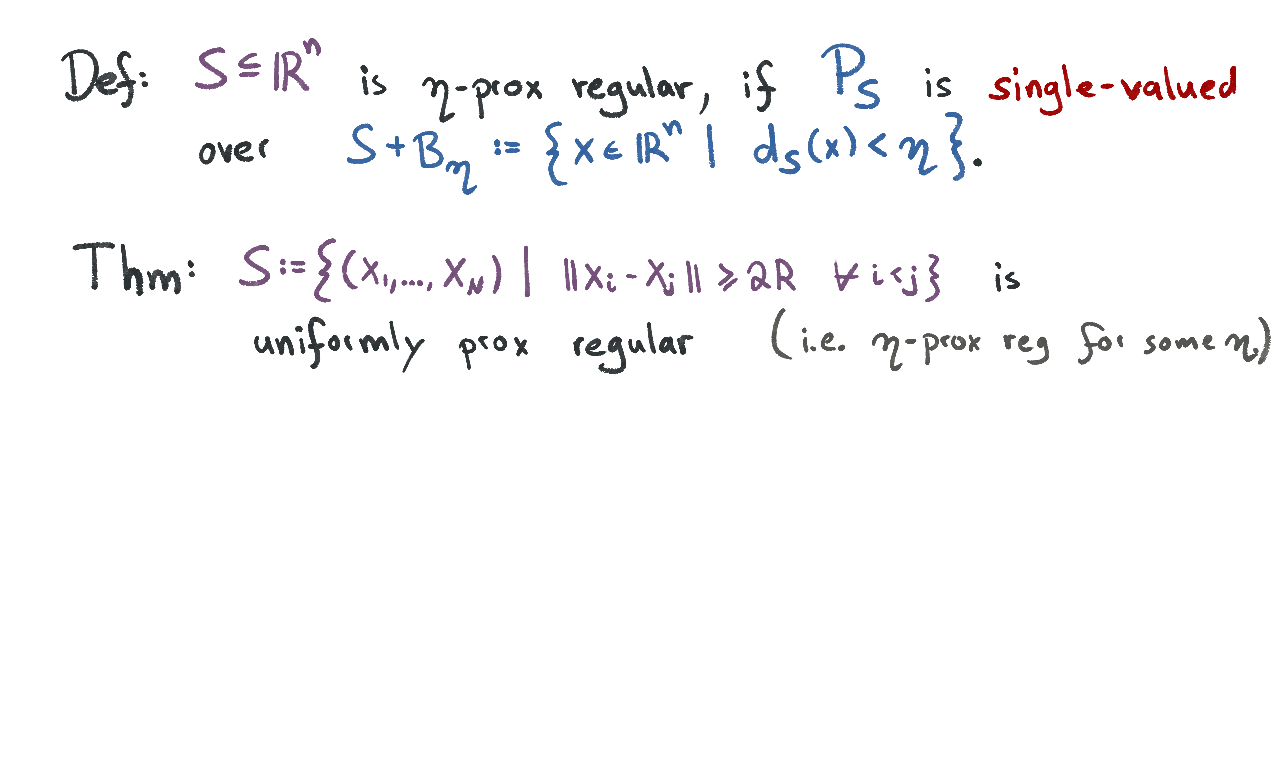 Def: S ⊆ ℝⁿ is η-prox regular, if P_S is single-valued
over S + B_η := {x ∈ ℝⁿ | d_S(x) < η}.
Thm: S := {(x₁,..., x_N) | ‖x_i - x_j‖ ⩾ 2R ∀ i<j} is
uniformly prox regular (i.e. η-prox reg for some η.)